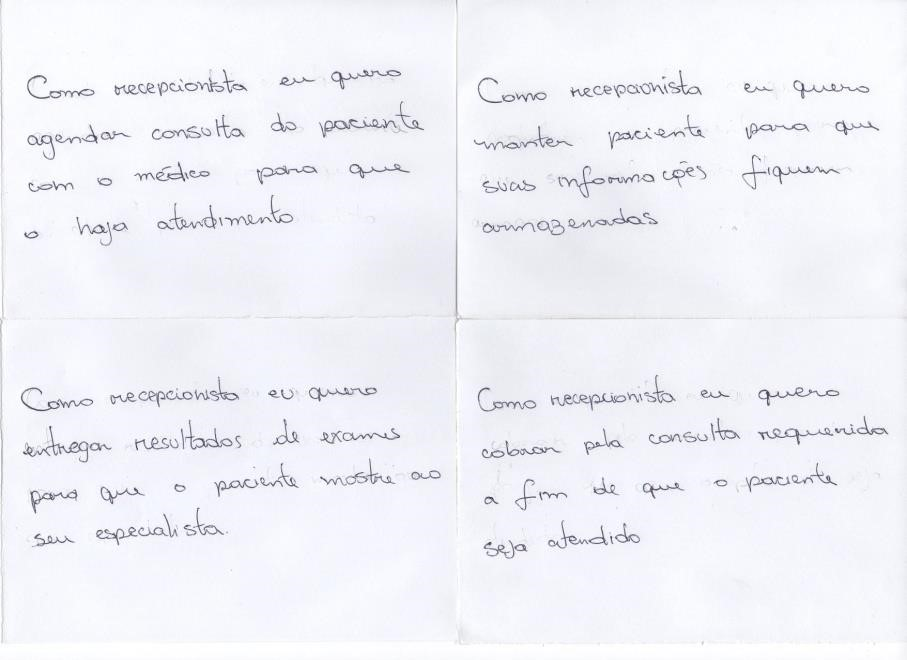 Como recepcionista eu quero
agendar consulta do paciente
com o médico para que
o haja atendimento
Como recepcionista eu quero
manter paciente para que
suas informações fiquem
armazenadas
Como recepcionista eu quero
entregar resultados de exames
para que o paciente mostre ao
seu especialista.
Como recepcionista eu quero
cobrar pela consulta requerida
a fim de que o paciente
seja atendido